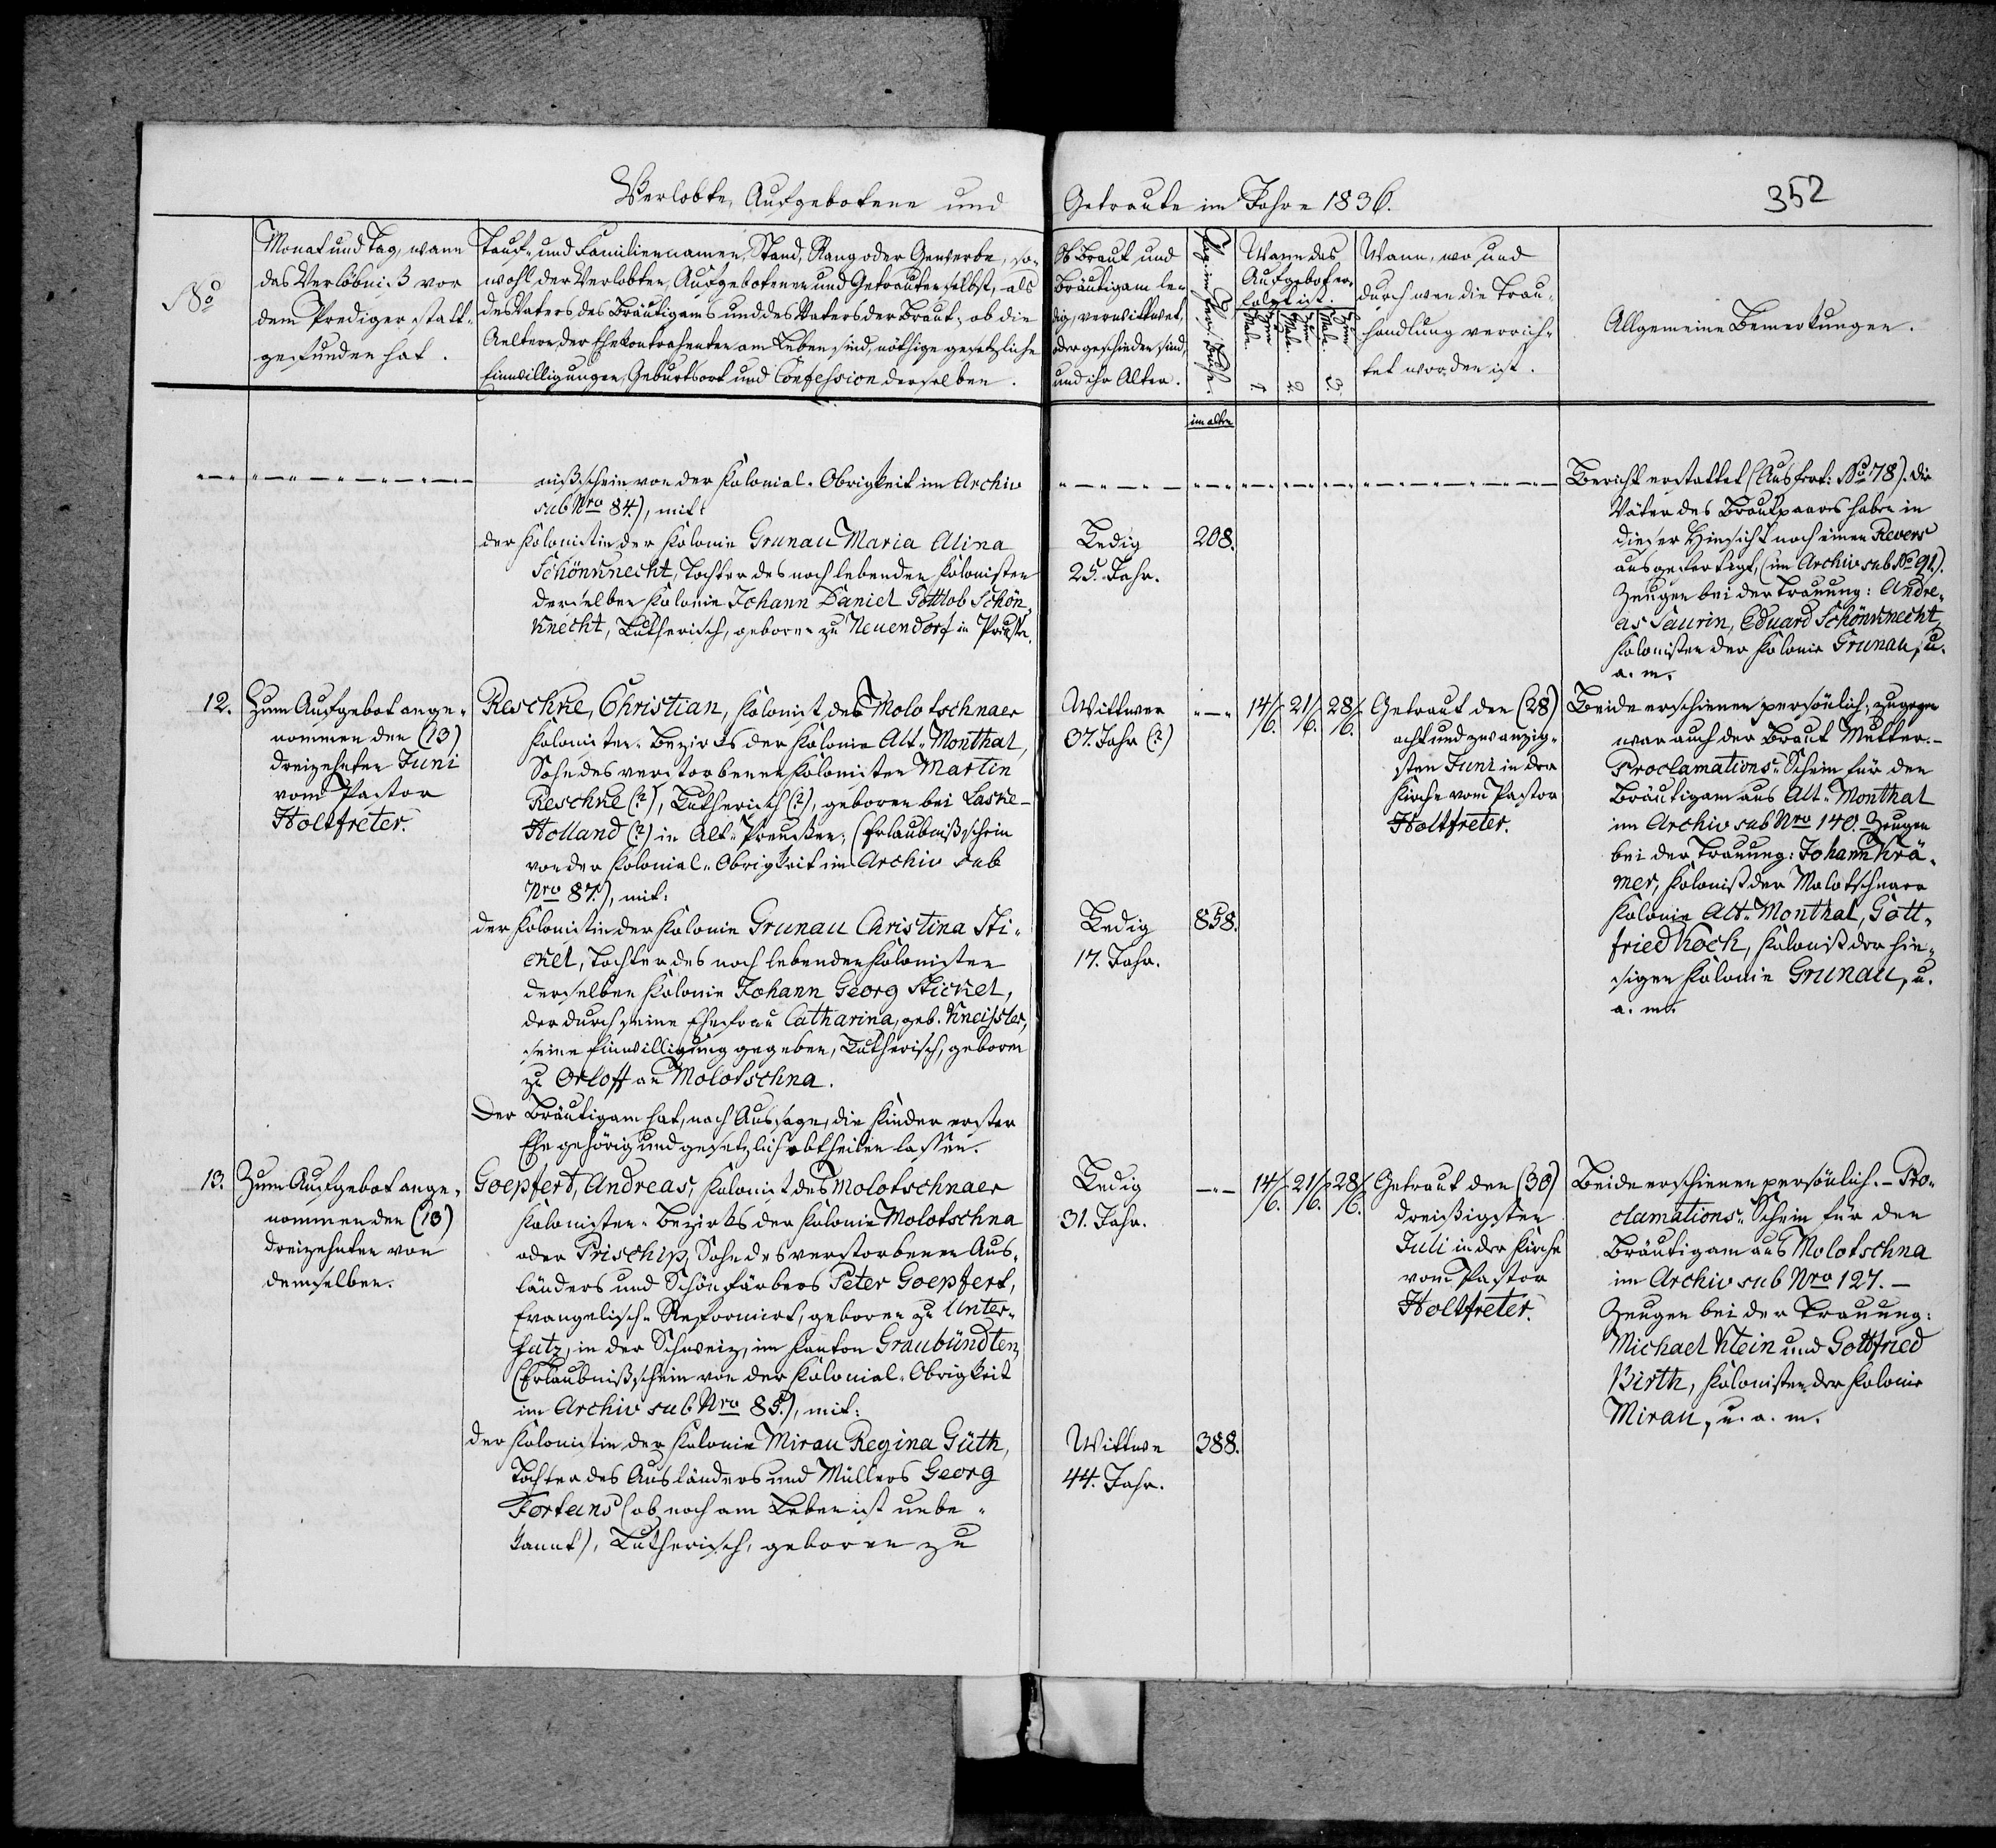 Verlobte, Aufgebotene und
Getraute im Jahre 1836.
352
No
Monat und Tag, wann
das Verlöbniß vor
dem Prediger statt-
gefunden hat.
Tauf- und Familiennamen, Stand, Rang oder Gewerbe, so-
wohl der Verlobten, Aufgebotenen und Getrauten selbst, als
des Vaters des Bräutigams und des Vaters der Braut, ob die
Aeltern der Ehekontrahenten am Leben sind, nöthige gesetzliche
Einwilligungen, Geburtsort und Confession derselben.
Ob Braut und
Bräutigam le-
dig, verwittwet,
oder geschieden sind,
und ihr Alter.
Wann das
Aufgebot er-
folgt ist.
Zum Male. 1.
Zum Male. 2.
Zum Male. 3.
Wann, wo und
durch wen die Trau-
handlung verrich-
tet worden ist.
Allgemeine Bemerkungen.
im alten
nißschein von der Kolonial-Obrigkeit im Archiv
sub Nro 84.), mit:
der Kolonistin der Kolonie Grunau Maria Alina
Schönknecht, Tochter des noch lebenden Kolonisten
derselben Kolonie Johann Daniel Gottlob Schön-
knecht, Lutherisch, geboren zu Neuendorf in Preußen.
Ledig
25. Jahr.
208.
Bericht erstattet (Ausfert: No 78). Die
Väter des Brautpaars haben in
dieser Hinsicht noch einen Revers
ausgefertigt, (im Archiv sub No 91.)
Zeugen bei der Trauung: Andre-
as Saurin, Eduard Schönknecht,
Kolonisten der Kolonie Grunau, u.
a. m.
12.
Zum Aufgebot ange-
nommen den (13)
dreizehnten Juni
vom Pastor
Holtfreter.
Reschke, Christian, Kolonist des Molotschnaer
Kolonisten-Bezirks der Kolonie Alt-Monthal,
Sohn des verstorbenen Kolonisten Martin
Reschke (?), Lutherisch (?), geboren bei Laske-
Holland (?) in Alt-Preußen; (Erlaubnißschein
von der Kolonial-Obrigkeit im Archiv sub
Nro 87.), mit:
der Kolonistin der Kolonie Grunau Christina Sti-
ckel, Tochter des noch lebenden Kolonisten
derselben Kolonie Johann Georg Stickel,
der durch seine Ehefrau Catharina, geb. Kneissler,
seine Einwilligung gegeben, Lutherisch, geboren
zu Orloff an Molotschna.
Der Bräutigam hat, nach Aussage, die Kinder erster
Ehe gehörig und gesetzlich abtheilen lassen.
Wittwer
37. Jahr (?)
Ledig
17. Jahr.
858.
14/6. 21/6. 28/6.
Getraut den (28)
acht und zwanzig-
sten Juni in der
Kirche vom Pastor
Holtfreter.
Beide erschienen persönlich, zugegen
war auch der Braut Mutter.-
Proclamations-Schein für den
Bräutigam aus Alt-Monthal
im Archiv sub Nro 140. Zeugen
bei der Trauung: Johann Krä-
mer, Kolonist der Molotschnaer
Kolonie Alt-Monthal, Gott-
fried Kock, Kolonist der hie-
sigen Kolonie Grunau, u.
a. m.
13.
Zum Aufgebot ange-
nommen den (13)
dreizehnten von
demselben.
Goepfert, Andreas, Kolonist des Molotschnaer
Kolonisten-Bezirks der Kolonie Molotschna
oder Prischip, Sohn des verstorbenen Aus-
länders und Schönfärbers Peter Goepfert,
Evangelisch-Reformirt, geboren zu Unter-
futz, in der Schweiz, im Kanton Graubündten,
(Erlaubnißschein von der Kolonial-Obrigkeit
im Archiv sub Nro 85.), mit:
der Kolonistin der Kolonie Mirau Regina Güth,
Tochter des Ausländers und Müllers Georg
Fortens (ob noch am Leben ist unbe-
kannt), Lutherisch, geboren zu
Ledig
31. Jahr.
Wittwe
44. Jahr.
388.
14/6. 21/6. 28/6.
Getraut den (30)
dreißigsten
Juli in der Kirche
vom Pastor
Holtfreter.
Beide erschienen persönlich.- Pro-
clamations-Schein für den
Bräutigam aus Molotschna
im Archiv sub Nro 127.-
Zeugen bei der Trauung:
Michael Klein und Gottfried
Birth, Kolonisten der Kolonie
Mirau, u. a. m.